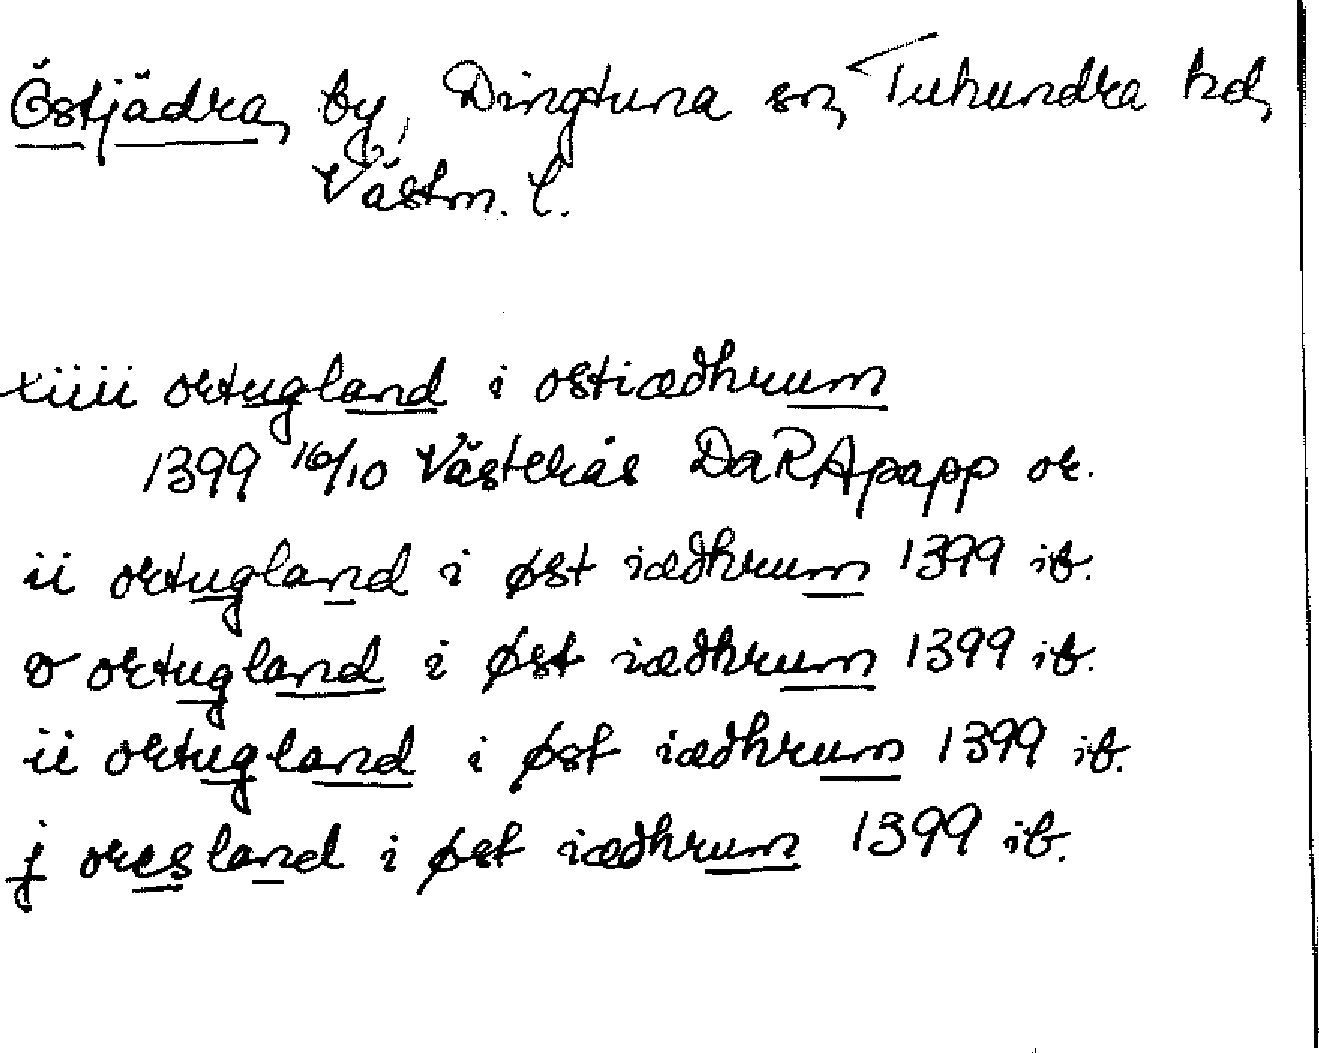 Östjädra, by, Dingtuna sn, Tuhundra hd,
Västm. l.
xiiii ortugland i ostiædhrum
1399 16/10 Västerås DaRApapp or.
ii ortugland i øst iædhrum 1399 ib.
v ortugland i øst iædhrum 1399 ib.
ii ortugland i øst iædhrum 1399 ib.
j oresland i øst iædhrum 1399 ib.